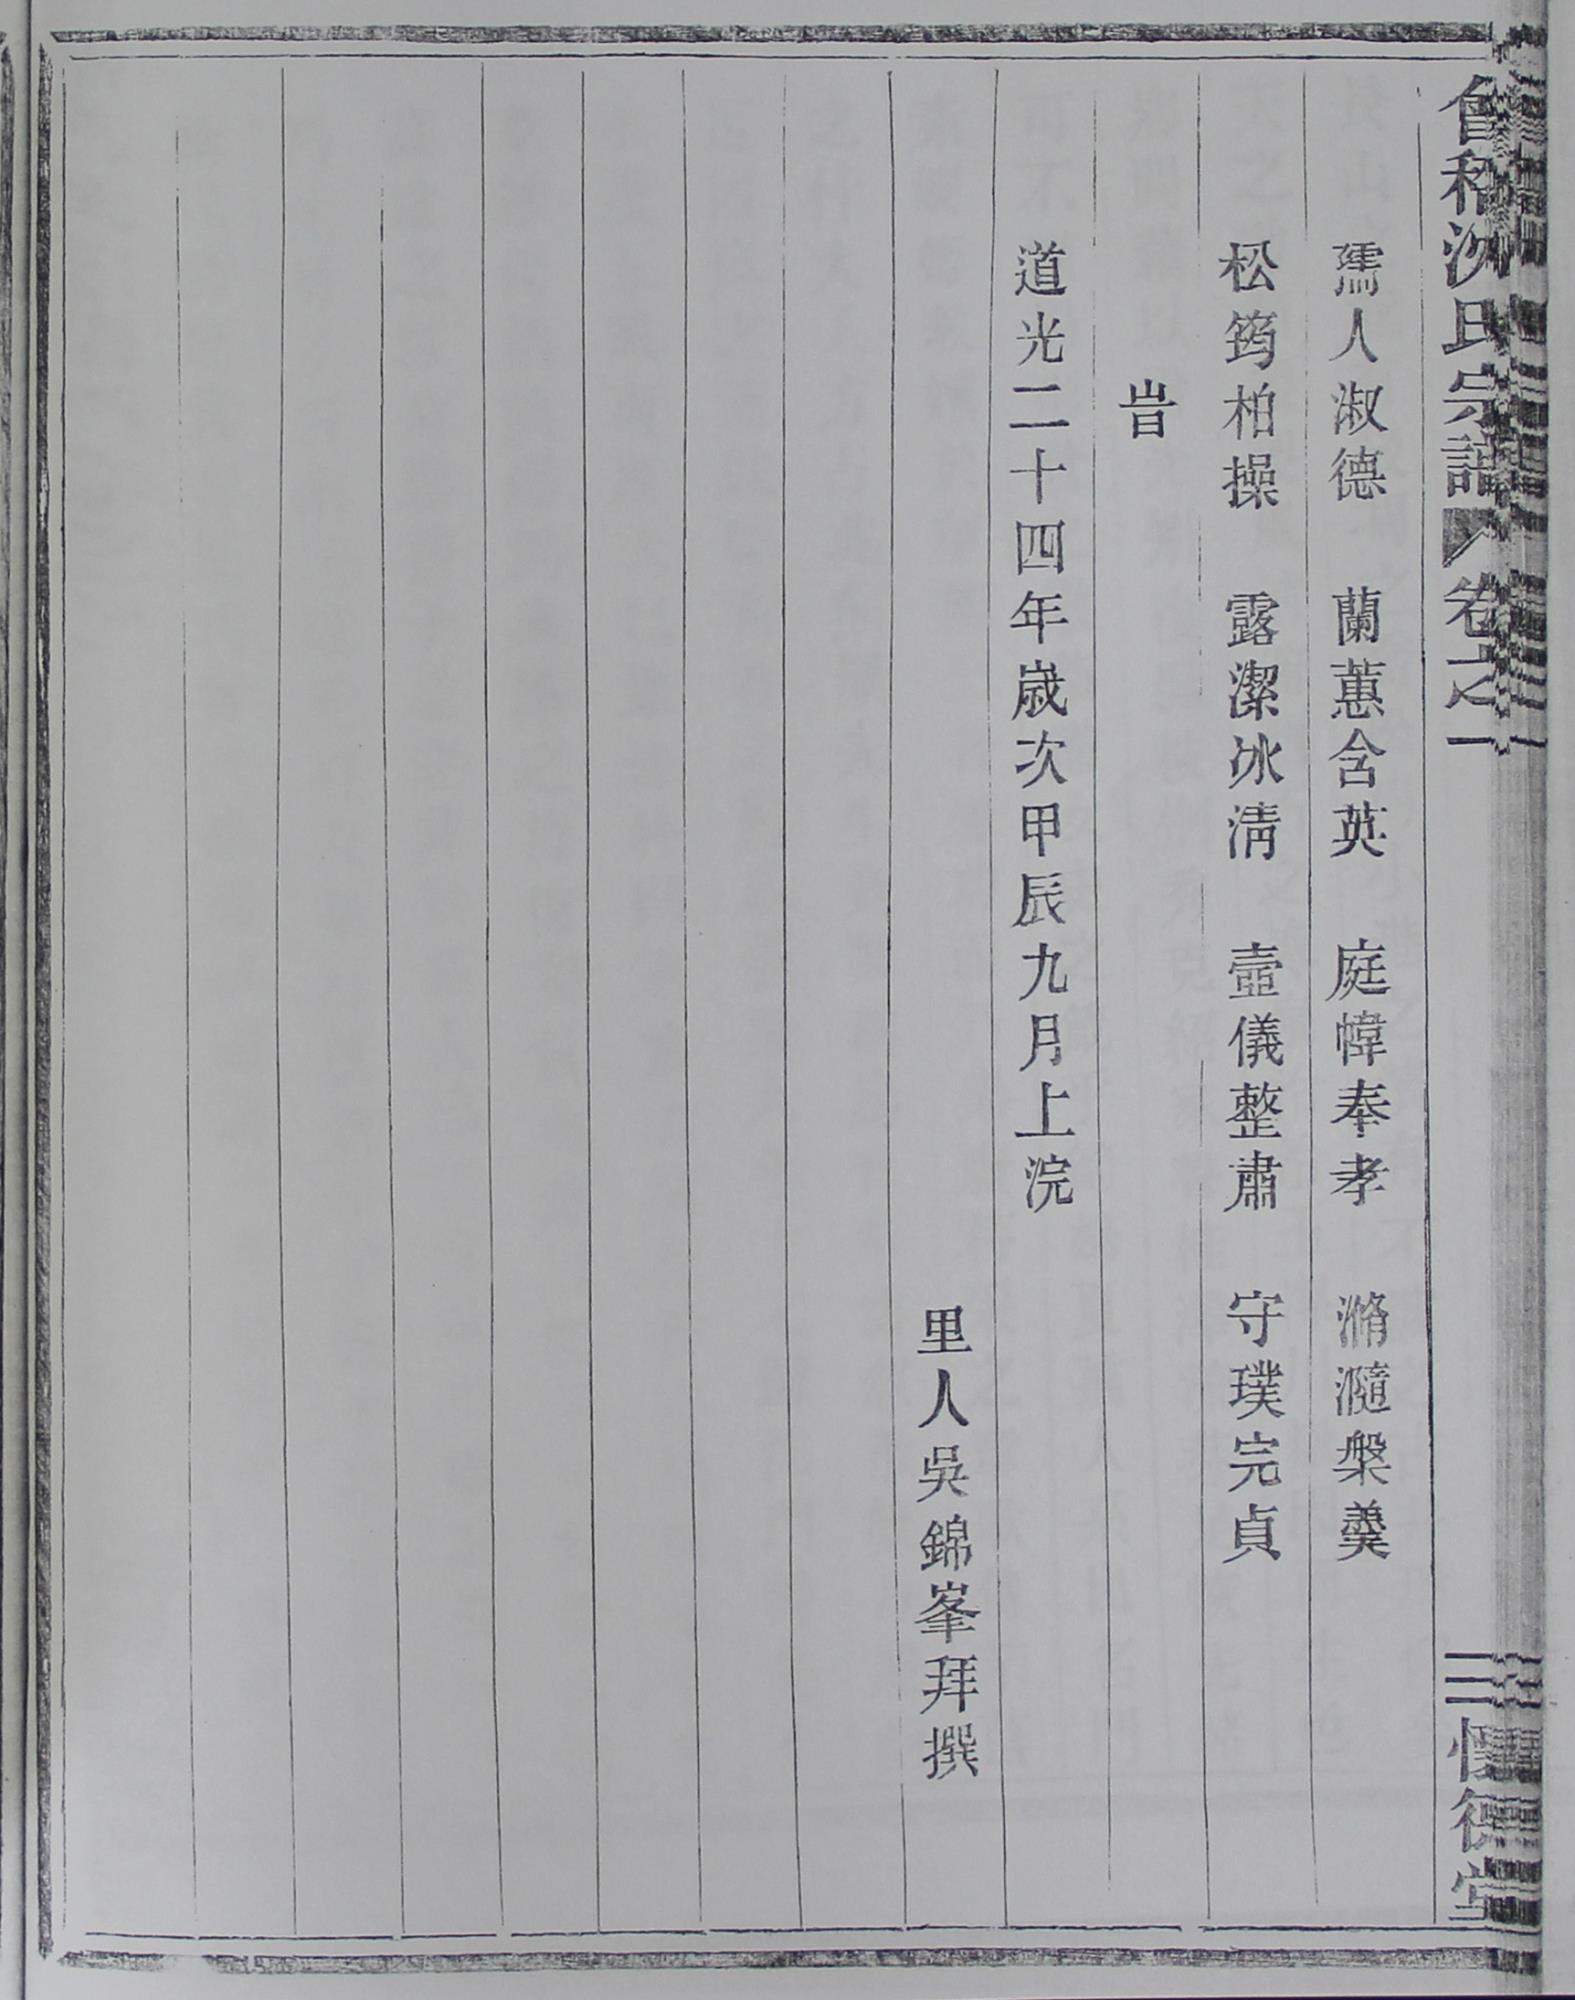 會稽沈氏宗譜 卷之一 懷德堂
孺人淑德 蘭蕙含英 庭幃奉孝 滫瀡槃羹
松筠柏操 露潔冰清 壼儀整肅 守璞完貞
旹
道光二十四年嵗次甲辰九月上浣
里人吳錦峯拜撰